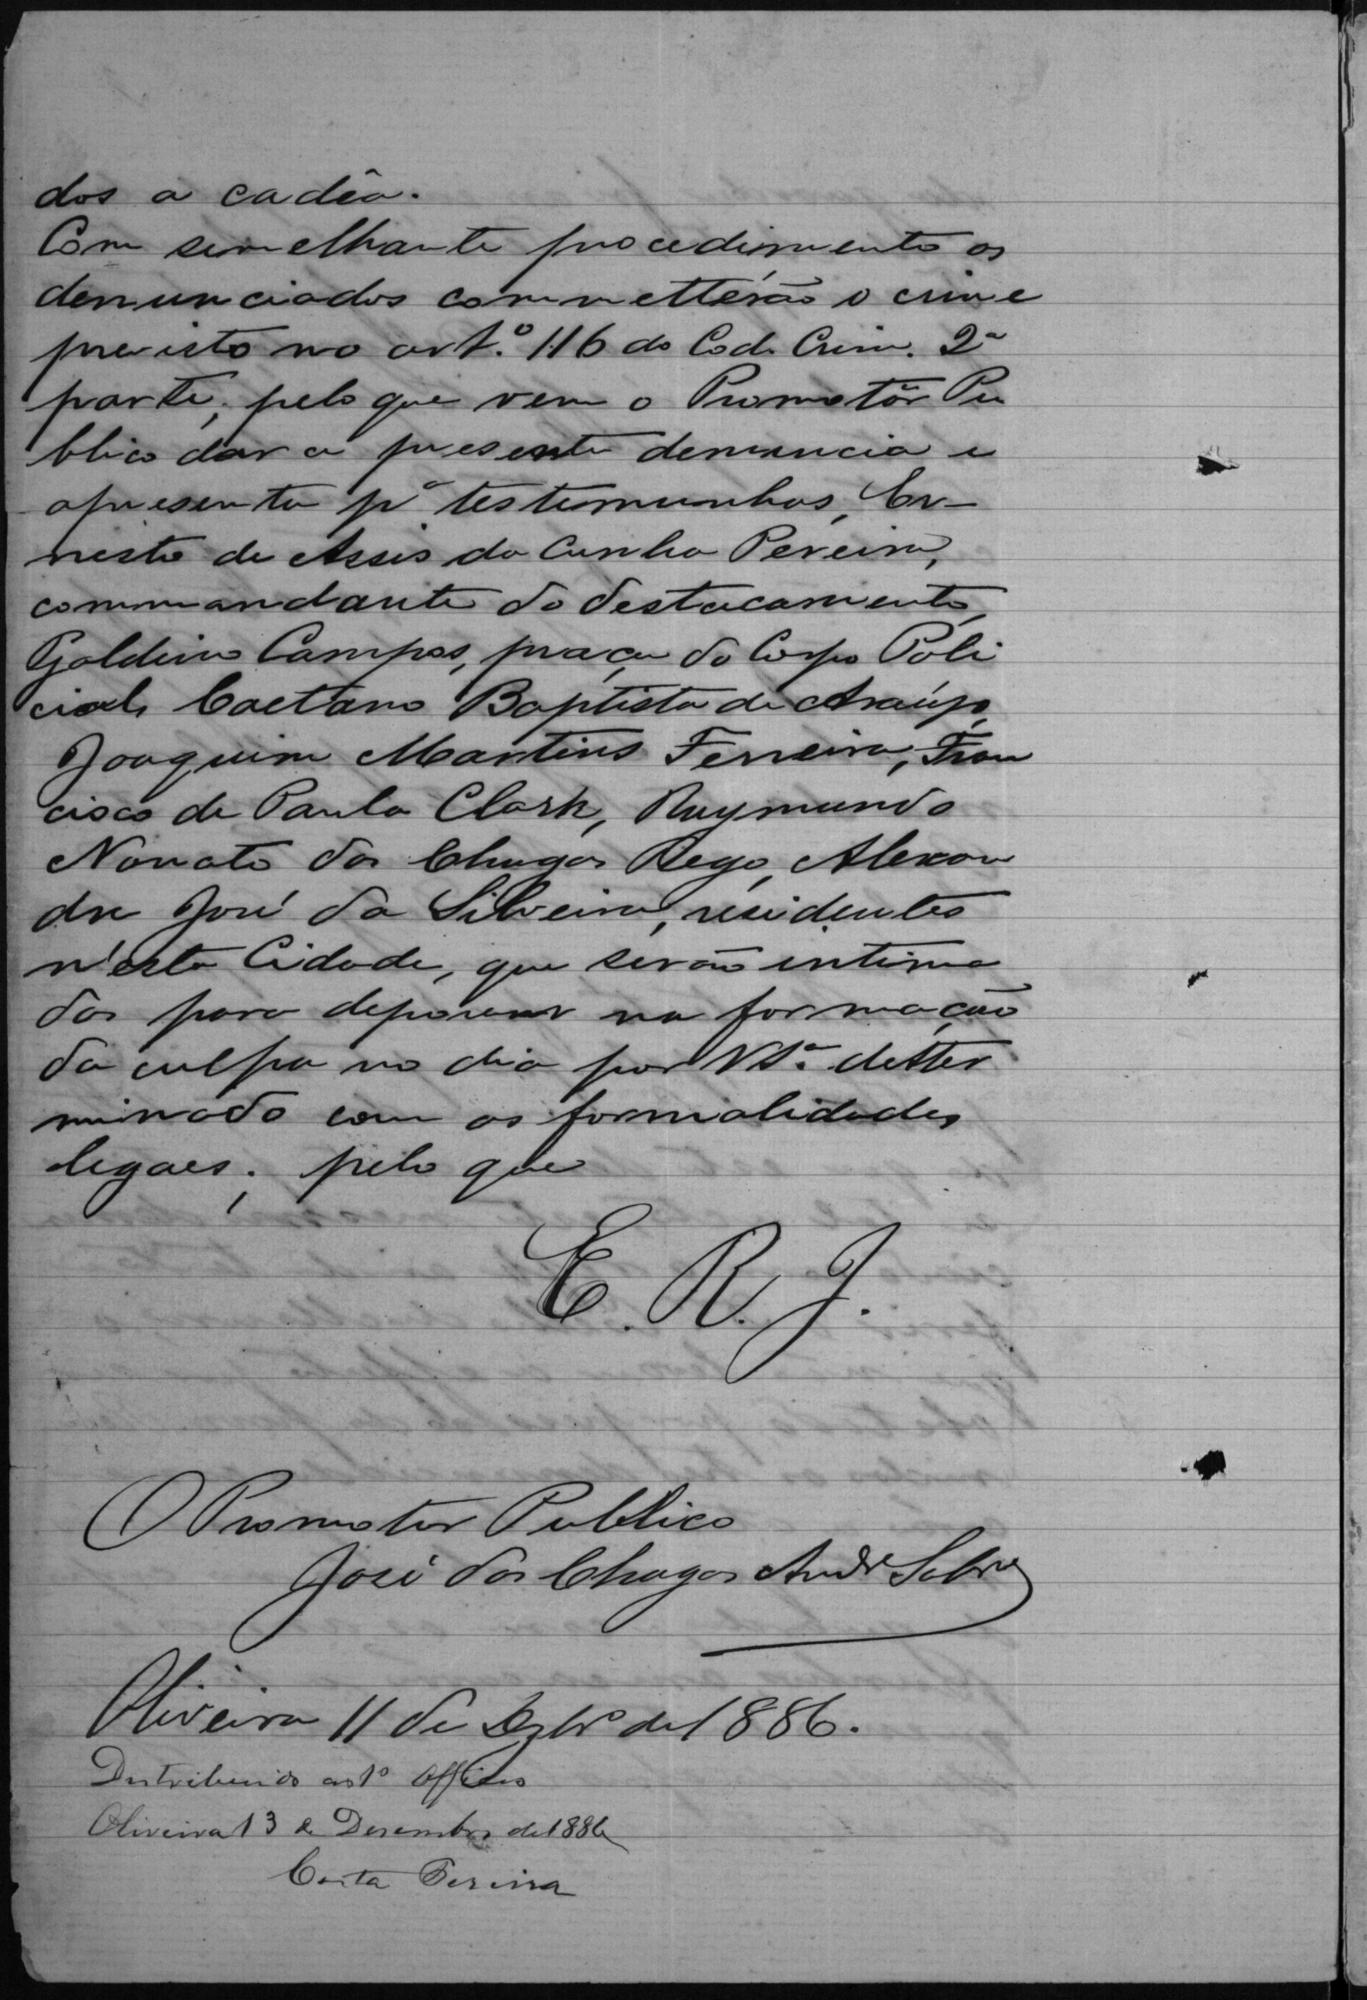 dos a cadêa.
Com semelhante procedimento os
denunciados commetterão o crime
previsto no art.º 116 do Cod. Crim. 2ª
parte, pelo que vem o Promotôr Pu
blico dar a presente denuncia e
apresenta pª testemunhas, Er-
nesto de Assis da Cunha Pereira,
commandante do destacamento,
Galdino Campos, praça do Corpo Poli
cial, Caetano Baptista de Araújo,
Joaquim Martins Ferreira, Fran
cisco de Paula Clark, Raymundo
Nonato das Chagas Rego, Alexan
dre José da Silveira, residentes
n'esta Cidade, que serão intima
dos para deporem na formação
da culpa no dia por VSª. detter
minado com as formalidades
legaes; pelo que
E. R. J.
O Promotor Publico
José das Chagas Andre Sobrº
Oliveira 11 de Dezbrº de 1886.
Destribuido ao 1º Officio
Oliveira 13 de Desembro de 1886
Costa Pereira